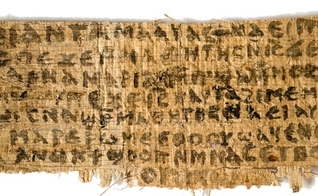 ⲁⲛ ⲧⲁⲙⲁⲁⲩ ⲁⲥϯ ⲛⲁⲉⲓ
ⲙⲙⲁⲑⲏⲧⲏⲥ ⲛⲓⲥ ϫⲉ
ⲁⲣⲛⲁ ⲙⲁⲣⲓⲁⲙ ⲙⲡϣⲁ ⲙⲙⲟⲥ ⲁⲛ
ⲡⲉϫⲉ ⲓⲥ ⲛⲁⲩ ⲧⲁϩⲓⲙⲉ ⲙⲛ
ⲥⲛⲁϣⲣⲙⲁⲑⲏⲧⲏⲥ ⲛⲁⲉⲓ ⲁⲩⲱ
ⲙⲁⲣⲉⲣⲱⲙⲉ ⲉⲑⲟⲟⲩ ϣⲁϥⲉ ⲛⲉ
ⲁⲛⲟⲕ ϯϣⲟⲟⲡ ⲛⲙⲙⲁⲥ ⲉⲧⲃⲉ